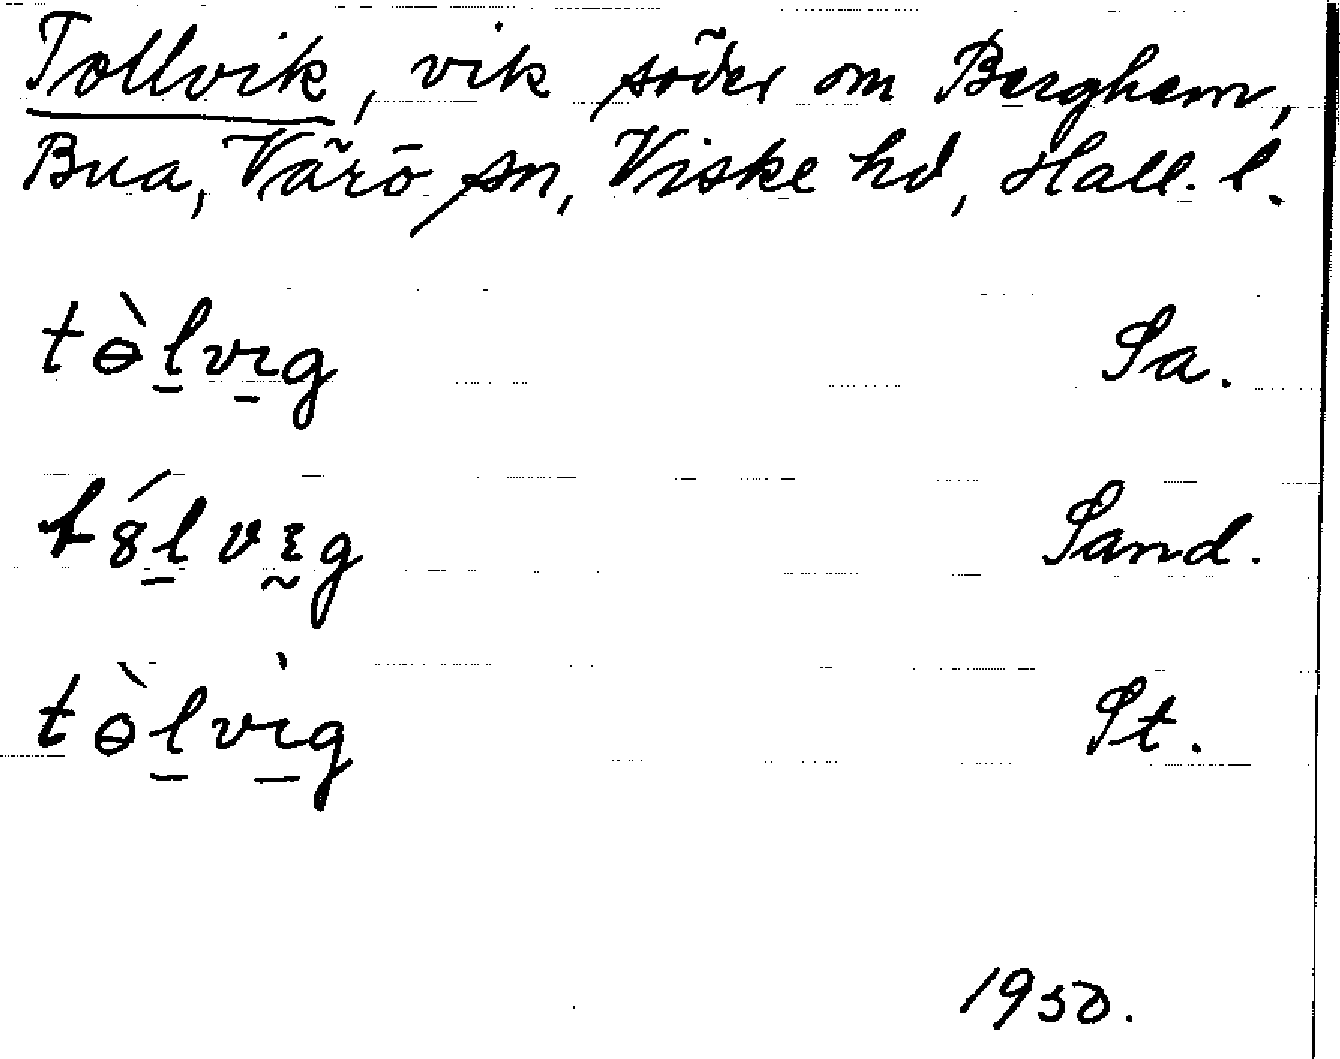 Tollvik, vik söder om Bergham,
Bua, Värö sn, Viske hd, Hall. l.
tɵ̀l̠vı̠g Sa.
t8́l̠vɛ̰g Sand.
tɵ̀l̠vı̠̀g St.
1950.